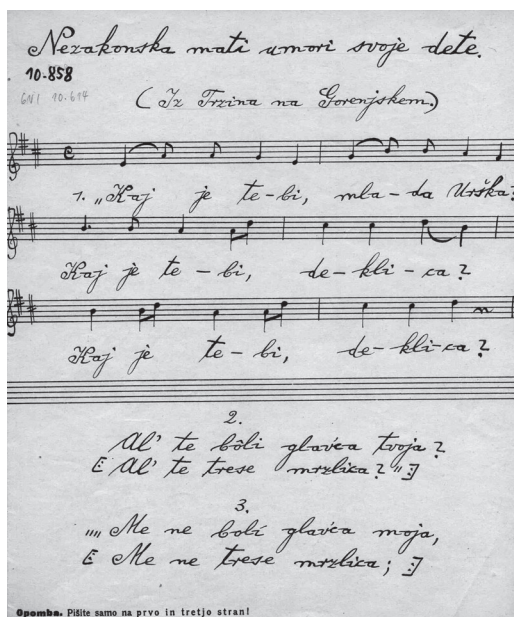 Nezakonska mati umori svoje dete.
10.858
GNI 10.614
(Iz Trzina na Gorenjskem.)
1. „Kaj je te-bi, mla-da Urška?
Kaj je te-bi, de-kli-ca?
Kaj je te-bi, de-kli-ca?
2.
Al' te bôli glav'ca tvoja?
[: Al' te trese mrzlica?" :]
3.
„„ Me ne bolí glav'ca moja,
[: Me ne trese mrzlica; :]
Opomba. Pišite samo na prvo in tretjo stran!